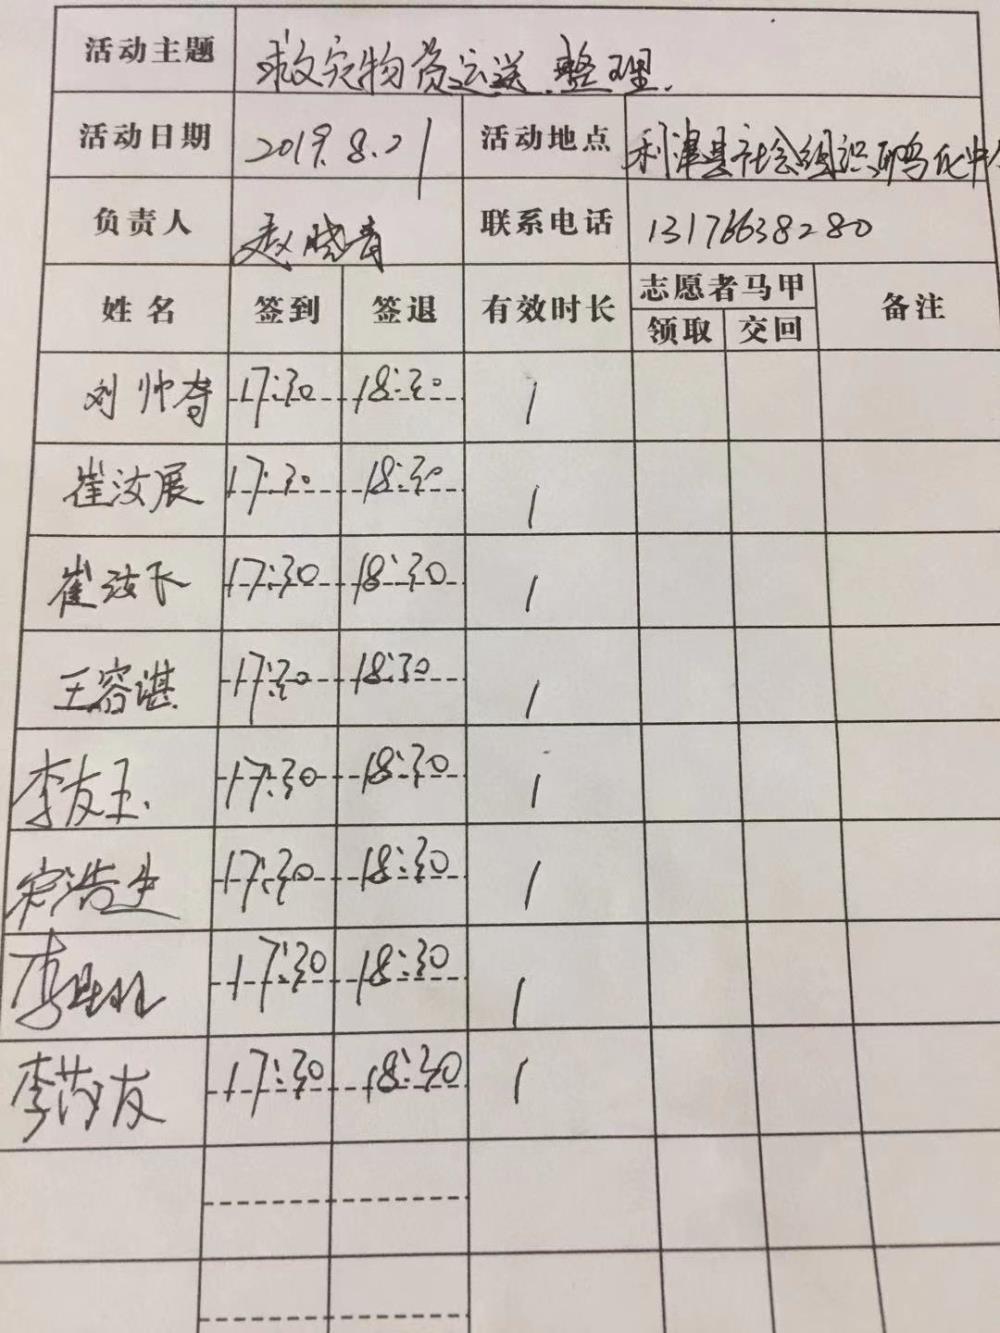 活动主题 救灾物资运送.整理.
活动日期 2019.8.21 活动地点 利津县社会组织孵化中
负责人 赵晓青 联系电话 13176638280
姓名 签到 签退 有效时长 志愿者马甲 备注
领取 交回
刘帅奇 17:30 18:30 1
崔汝展 17:30 18:30 1
崔汝飞 17:30 18:30 1
王容谌 17:30 18:30 1
李友玉 17:30 18:30 1
17:30 18:30 1
李 17:30 18:30 1
李 友 17:30 18:30 1